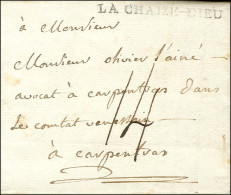 LA CHAIZE-DIEU
à Monsieur
Monsieur olivier l'ainé
avocat a carpentras dans
le comtat venessin
à carpentras